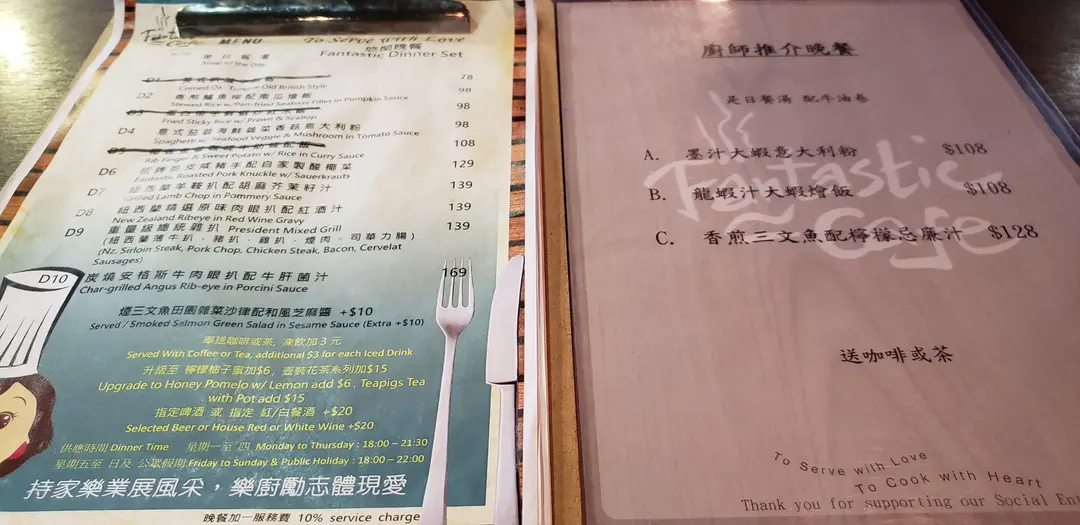 Fantastic
Cafe MENU
To Serve with Love
悠閒晚餐
Fantastic Dinner Set
是日餐湯
Soup of the Day
D1 78
Corned Ox Tongue Old British Style
D2 香煎鱸魚柳配南瓜燴飯 98
Stewed Rice w/Pan-fried Seabass Fillet in Pumpkin Sauce
D3 98
Fried Sticky Rice w/Prawn & Scallop
D4 意式茄蓉海鮮雜菜香菇意大利粉 98
Spaghetti w/Seafood Veggie & Mushroom in Tomato Sauce
D5 108
Rib Finger & Sweet Potato w/Rice in Curry Sauce
D6 招牌脆皮咸豬手配自家製酸椰菜 129
Fantastic Roasted Pork Knuckle w/Sauerkrauts
D7 紐西蘭羊鞍扒配胡麻芥茉籽汁 139
Grilled Lamb Chop in Pommery Sauce
D8 紐西蘭精選原味肉眼扒配紅酒汁 139
New Zealand Ribeye in Red Wine Gravy
D9 重量級總統雜扒 President Mixed Grill 139
(紐西蘭薄牛扒，豬扒，雞扒，煙肉，司華力腸)
(Nz. Sirloin Steak, Pork Chop, Chicken Steak, Bacon, Cervelat
Sausages)
D10 炭燒安格斯牛肉眼扒配牛肝菌汁 169
Char-grilled Angus Rib-eye in Porcini Sauce
煙三文魚田園雜菜沙律配和風芝麻醬 +$10
Served / Smoked Salmon Green Salad in Sesame Sauce (Extra +$10)
奉送咖啡或茶, 凍飲加3元
Served With Coffee or Tea, additional $3 for each Iced Drink
升級至 檸檬柚子蜜加$6, 壺裝花茶系列加$15
Upgrade to Honey Pomelo w/ Lemon add $6, Teapigs Tea
with Pot add $15
指定啤酒 或 指定 紅/白餐酒 +$20
Selected Beer or House Red or White Wine +$20
供應時間 Dinner Time 星期一至 四 Monday to Thursday : 18:00 – 21:30
星期五至 日及 公眾假期 Friday to Sunday & Public Holiday : 18:00 – 22:00
持家樂業展風采，樂廚勵志體現愛
晚餐加一服務費 10% service charge
廚師推介晚餐
是日餐湯 配牛油卷
A. 墨汁大蝦意大利粉 $108
B. 龍蝦汁大蝦燴飯 $108
C. 香煎三文魚配檸檬忌廉汁 $128
Fantastic
Cafe
送咖啡或茶
To Serve with Love
To Cook with Heart
Thank you for supporting our Social Ent